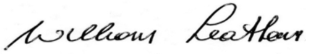 William Leathers